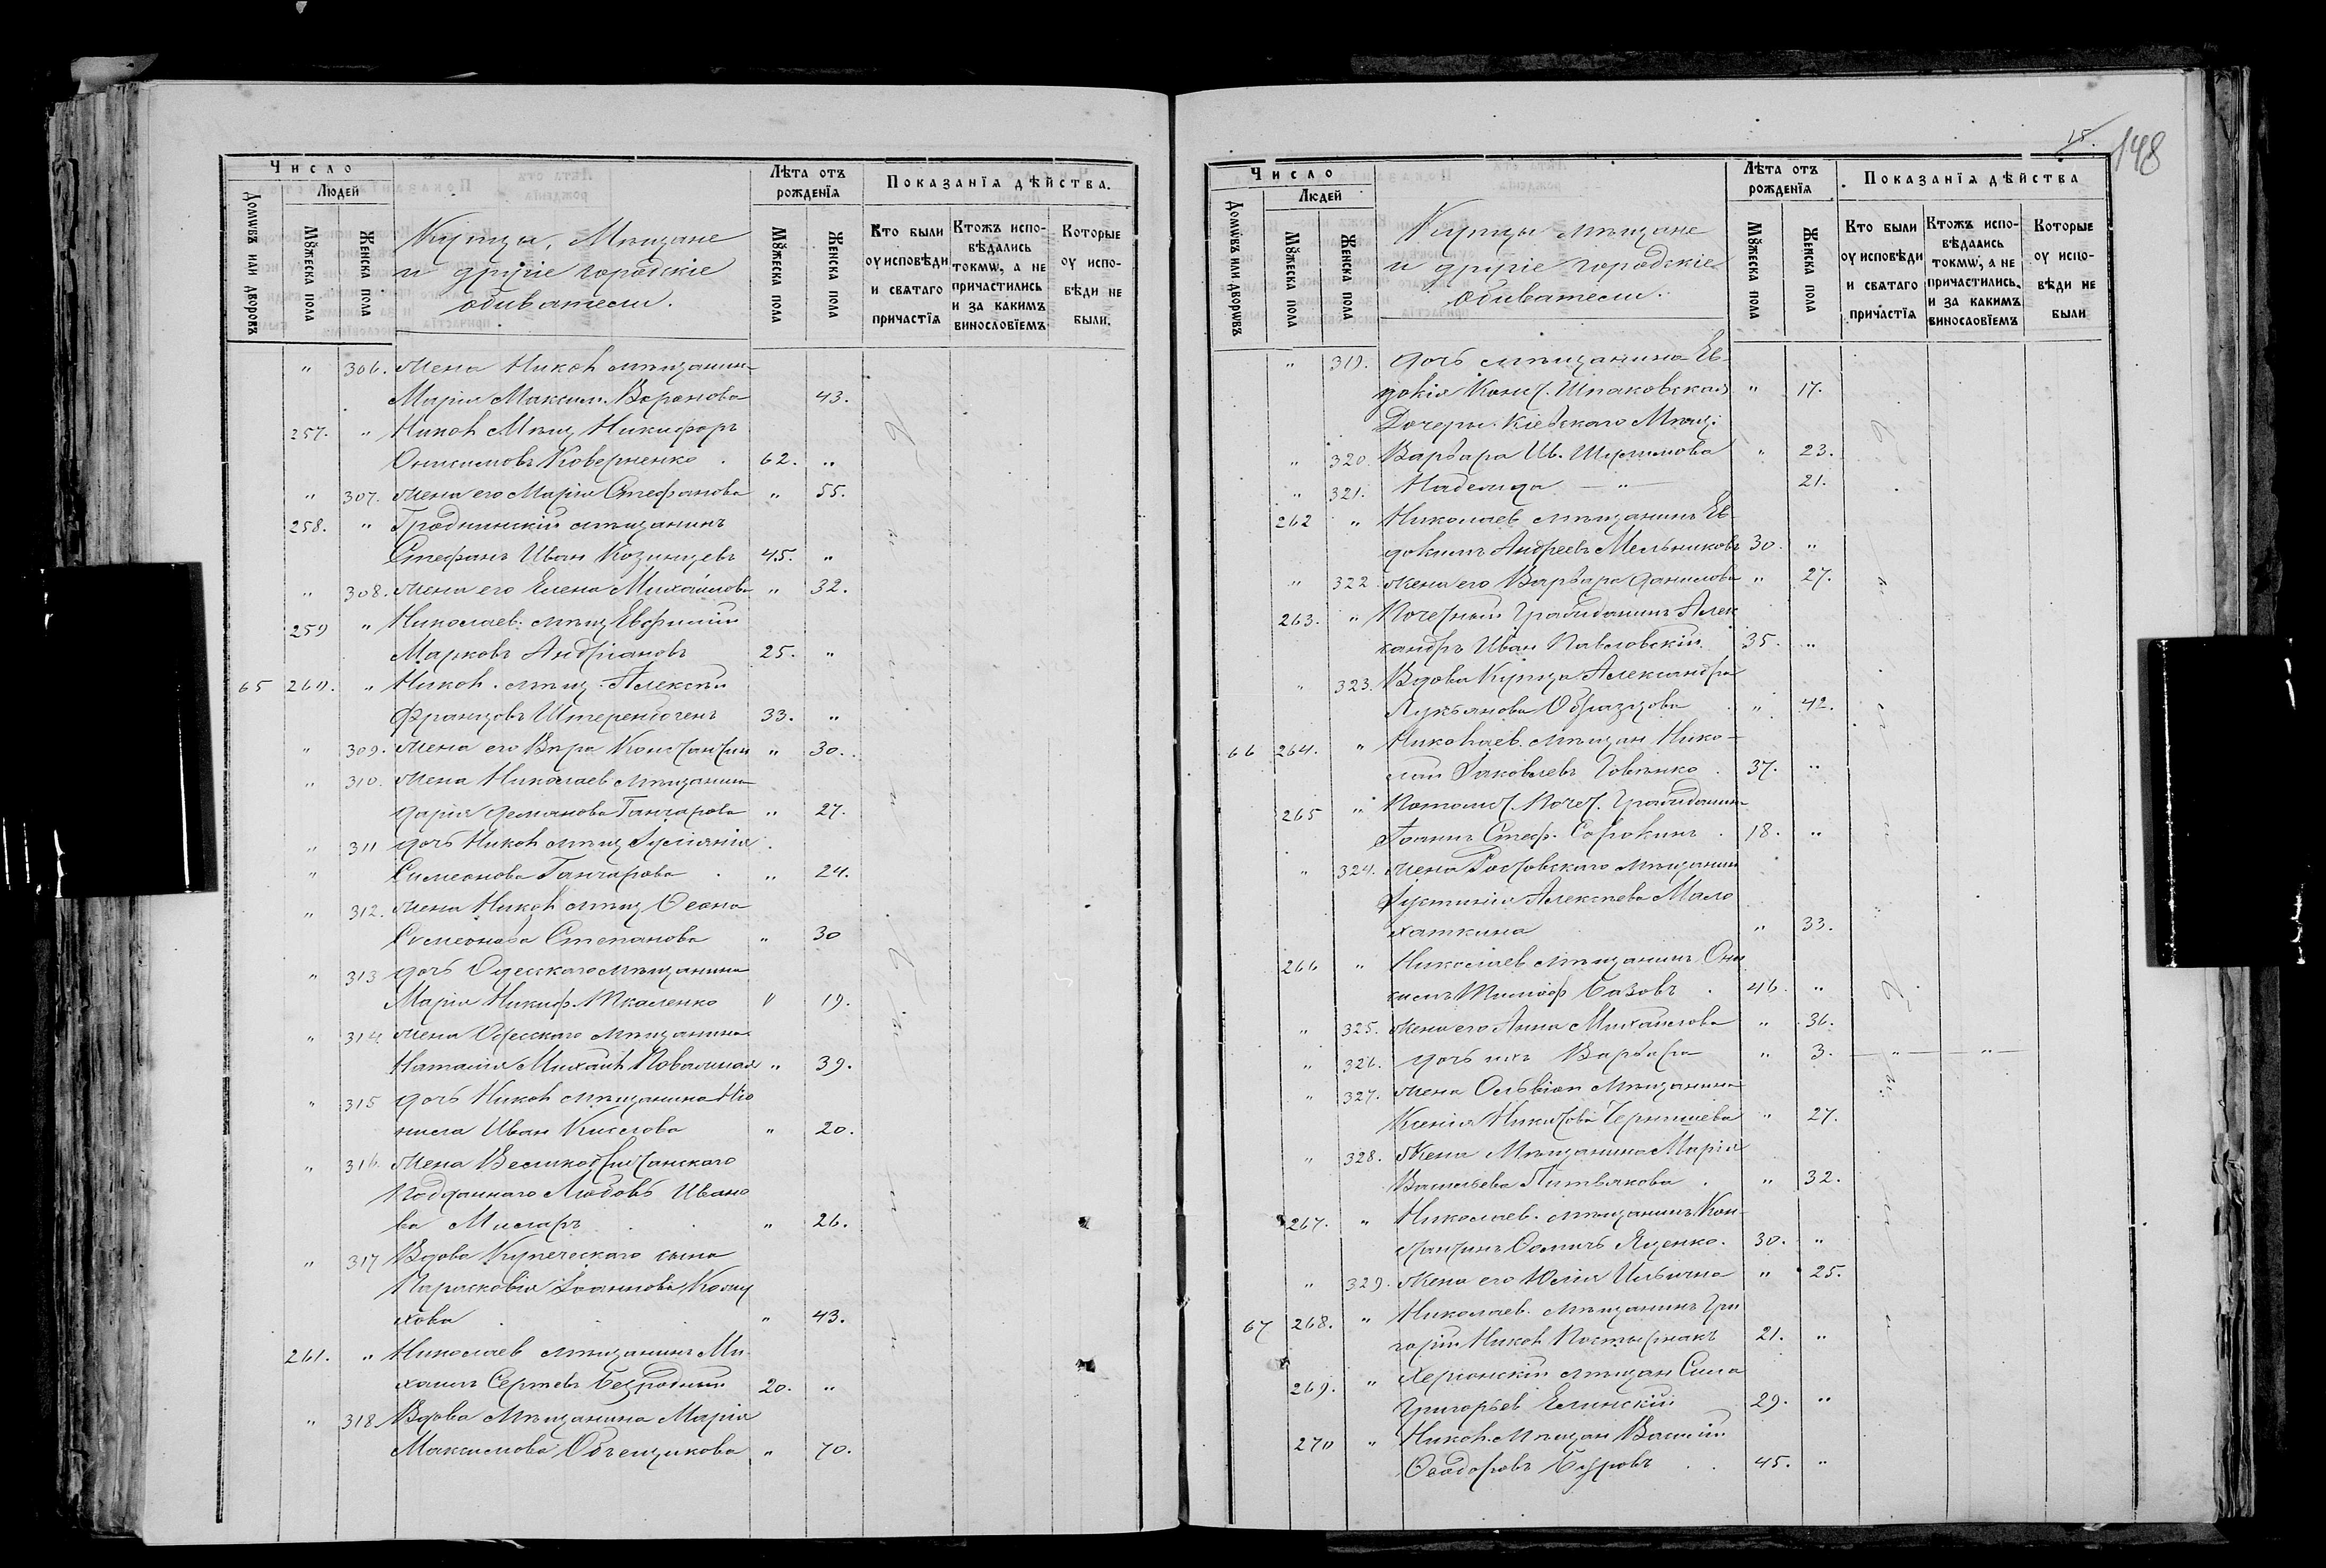 Число
Людей
Домѡвъ или дворовъ
Мꙋжеска пола
Женска пола
Купцы, Мѣщане
и другіе городскіе
обыватели.
Лѣта отъ
рожденїя
Мꙋжеска пола
Женска пола
Показанїя дѣйства.
Кто были
оу исповѣди
и святаго
причастїя
Ктожъ испо-
вѣдались
токмѡ, а не
причастились
и за какимъ
винословїемъ
Которые
оу испо-
вѣди не
были.
" 306. Жена Никол мѣщанина
Марія Максим. Воронова 43.
257. " Никол Мѣщ Никифоръ
Онисимовъ Коверненко . 62. "
" 307. Жена его Марія Стефанова " 55.
258. " Гроднинскій мѣщанинъ
Стефанъ Иван Козинцевъ 45. "
" 308. Жена его Елена Михайлова " 32.
259 " Николаев. мѣщ Евфимій
Марковъ Андріановъ 25. "
65 260. " Никол. мѣщ. Алексѣй
Францовъ 33. "
" 309. Жена его Вѣра Константин " 30.
" 310. Жена Николаев мѣщанина
Дарія Демянова Ганчарова " 27.
" 311 дочь Никол мѣщ Іуліанія
" Симеонова Ганчарова . " 24.
" 312. Жена Никол мѣщ
Симеонова Степанова " 30
" 313 дочь Одесскаго мѣщанина
Марія Никиф. Ткаленко " 19.
" 314 Жена Одесскаго мѣщанина
Наталія Михаил " 39.
" 315 дочь Никол мѣщанина Нео
нила Иван Киселова " 20.
" 316. Жена Великобританскаго
Подданнаго Любовь Ивано
ва " 26.
" 317 Вдова Купеческаго сына
Параскевія Іоаннова
хова . " 43.
261. " Николаев мѣщанинъ Ми
хаилъ Сергѣевъ Безродный 20. "
" 318 Вдова мѣщанина Марія
Максимова Объещикова " 70.
15.
148
Число
Людей
Домѡвъ или дворѡвъ
Мꙋжеска пола
Женска пола
Купцы мѣщане
и другіе городскіе
Обыватели.
Лѣта отъ
рожденїя
Мꙋжеска пола
Женска пола
Показанїя дѣйства
Кто были
оу исповѣди
и святаго
причастїя
Ктожъ испо-
вѣдались
токмѡ, а не
причастились
и за какимъ
винословїемъ
Которые
оу испо-
вѣди не
были
" 319. дочь мѣщанина Ев-
докія Конст. Шпаковская " 17.
Дочери Кіевскаго Мѣщ:
" 320. Варвара Ив. " 23.
" 321. Надежда — " — 21.
262 " Николаев мѣщанинъ Ев-
докимъ Андреевъ Мельниковъ 30. "
" 322. Жена его Варвара Данилова " 27.
263. " Почетный гражданинъ Алек
сандръ Иван Павловскій. 35. "
" 323. Вдова Купца Александра
Лукьянова Образцова " 42.
66 264. " Николаев. мѣщан Нико-
лай Яковлевъ . 37. "
265 " Потомст. Почет. гражданинъ
Іоаннъ Стеф. Сорокинъ . 18. "
" 324. Жена Ростовскаго мѣщанина
Іустинія Алексѣева Мало
хаткина " 33.
266 " Николаев мѣщанинъ Они
симъ Тимоф Базовъ . 46. "
" 325. Жена его Анна Михайлова " 36.
" 326. дочь ихъ Варвара " 3. — " — " —
" 327. Жена Ольвіоп мѣщанина
Ксенія Никитова Чернишева " 27.
" 328. Жена Мѣщанина Марія
Васильева Питьякова . " 32.
267. " Николаев. мѣщанинъ Кон-
стантинъ Яценко. 30. "
" 329. Жена его Юлія Ильина " 25.
67 268. " Николаев. мѣщанинъ Гри
горій Никол Постернакъ 21. "
269. " Херсонскій мѣщан Сила
Григорьев Елинскій 29. "
270 " Никол. мѣщан Василій
Ѳеодоровъ . . 45. "